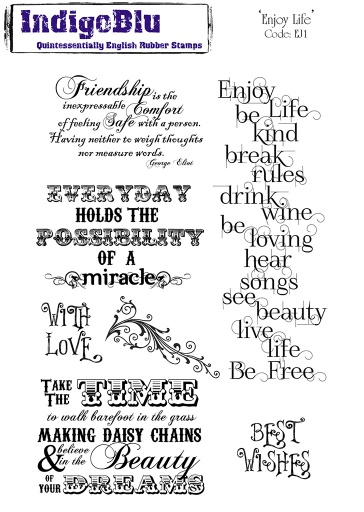 IndigoBlu
Quintessentially English Rubber Stamps
'Enjoy Life'
Code: EJ1
Friendship is the
inexpressable Comfort
of feeling Safe with a person.
Having neither to weigh thoughts
nor measure words.
George Eliot
EVERYDAY
HOLDS THE
POSSIBILITY
OF A
miracle
WITH
LOVE
TAKE THE TIME
to walk barefoot in the grass
MAKING DAISY CHAINS
& believe in the Beauty
OF YOUR DREAMS
Enjoy
be Life
kind
break
rules
drink
wine
be
loving
hear
songs
see
beauty
live
life
Be Free
BEST
WISHES